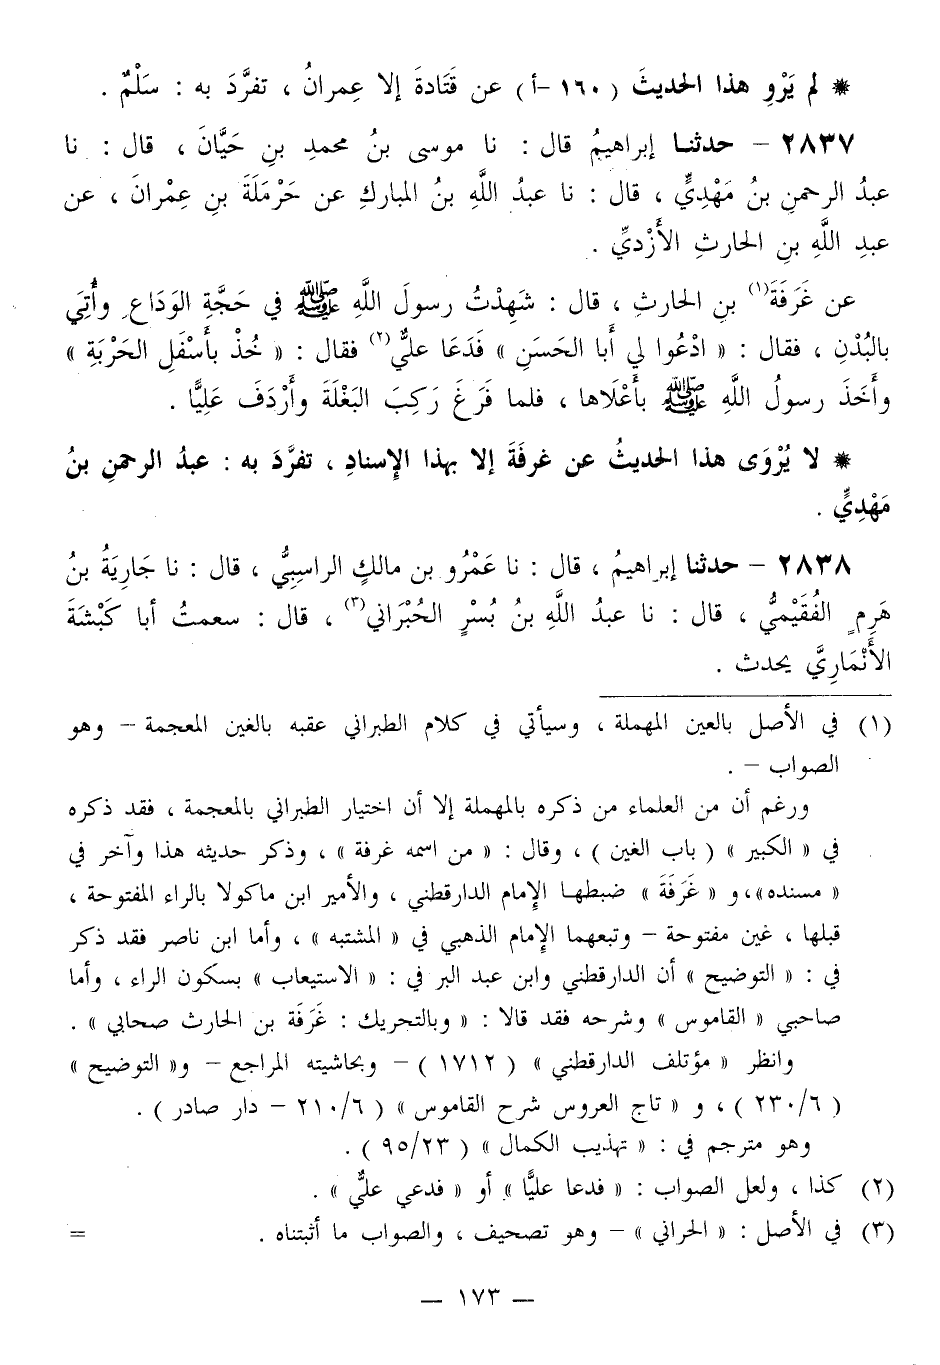 * لم يَرْوِ هذا الحديثَ ( ١٦٠ -أ ) عن قَتَادةَ إلا عِمرانُ ، تفرَّدَ به : سَلْمٌ .
٢٨٣٧ - حدثنـا إبراهيمُ قال : نا موسى بنُ محمدِ بنِ حَيَّانَ ، قال : نا
عبدُ الرحمنِ بنُ مَهْدِيٍّ ، قال : نا عبدُ اللَّهِ بنُ المباركِ عن حَرْمَلَةَ بنِ عِمْرانَ ، عن
عبدِ اللَّهِ بنِ الحارثِ الأَزْديِّ .
عن غَرَفَةَ(١) بنِ الحارثِ ، قال : شَهِدْتُ رسولَ اللَّهِ ﷺ في حَجَّةِ الوَدَاعِ وأُتِيَ
بالبُدْنِ ، فقال : « ادْعُوا لي أَبا الحَسَنِ » فَدَعَا عليٌّ(٢) فقال : « خُذْ بأَسْفَلِ الحَرْبَةِ »
وأَخَذَ رسولُ اللَّهِ ﷺ بأَعْلَاها ، فلما فَرَغَ رَكِبَ البَغْلَةَ وأَرْدَفَ عَلِيًّا .
* لا يُرْوَى هذا الحديثُ عن غرفَةَ إلا بهذا الإِسنادِ ، تفرَّدَ به : عبدُ الرحمنِ بنُ
مَهْدِيٍّ .
٢٨٣٨ - حدثنا إبراهيمُ ، قال : نا عَمْرُو بن مالكٍ الراسِبِيُّ ، قال : نا جَارِيَةُ بنُ
هَرِمٍ الفُقَيْمِيُّ ، قال : نا عبدُ اللَّهِ بنُ بُسْرٍ الحُبْرَاني(٣) ، قال : سمعتُ أبا كَبْشَةَ
الأَنْمَارِيَّ يحدث .
(١) في الأصل بالعين المهملة ، وسيأتي في كلام الطبراني عقبه بالغين المعجمة - وهو
الصواب - .
ورغم أن من العلماء من ذكره بالمهملة إلا أن اختيار الطبراني بالمعجمة ، فقد ذكره
في « الكبير » ( باب الغين ) ، وقال : « من اسمه غرفة » ، وذكر حديثه هذا وآخر في
« مسنده»، و « غَرَفَةَ » ضبطهـا الإمام الدارقطني ، والأمير ابن ماكولا بالراء المفتوحة ،
قبلها ، غين مفتوحة - وتبعهما الإمام الذهبي في « المشتبه » ، وأما ابن ناصر فقد ذكر
في : « التوضيح » أن الدارقطني وابن عبد البر في : « الاستيعاب » بسكون الراء ، وأما
صاحبي « القاموس » وشرحه فقد قالا : « وبالتحريك : غَرَفة بن الحارث صحابي » .
وانظر « مؤتلف الدارقطني » ( ١٧١٢ ) - وبحاشيته المراجع - و« التوضيح »
( ٢٣٠/٦ ) ، و « تاج العروس شرح القاموس » ( ٢١٠/٦ - دار صادر ) .
وهو مترجم في : « تهذيب الكمال » ( ٩٥/٢٣ ) .
(٢) كذا ، ولعل الصواب : « فدعا عليًّا » أو « فدعي عليٌّ » .
(٣) في الأصل : « الحراني » - وهو تصحيف ، والصواب ما أثبتناه . =
- ١٧٣ -